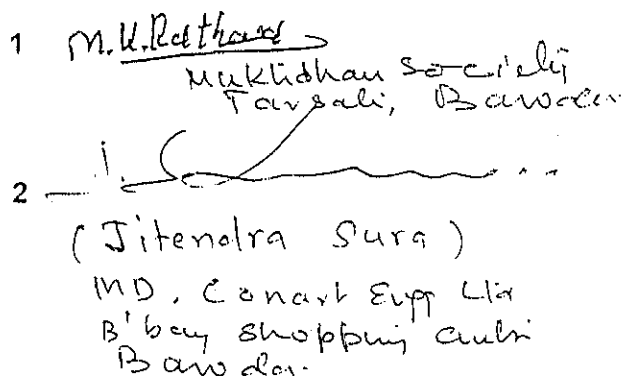 1 M.K.Rathava
Mukhdhan Society
Tarsali, Baroda
2
(Jitendra Sura)
MD. Conart Engg Ltd
B'bay shopping
Baroda.